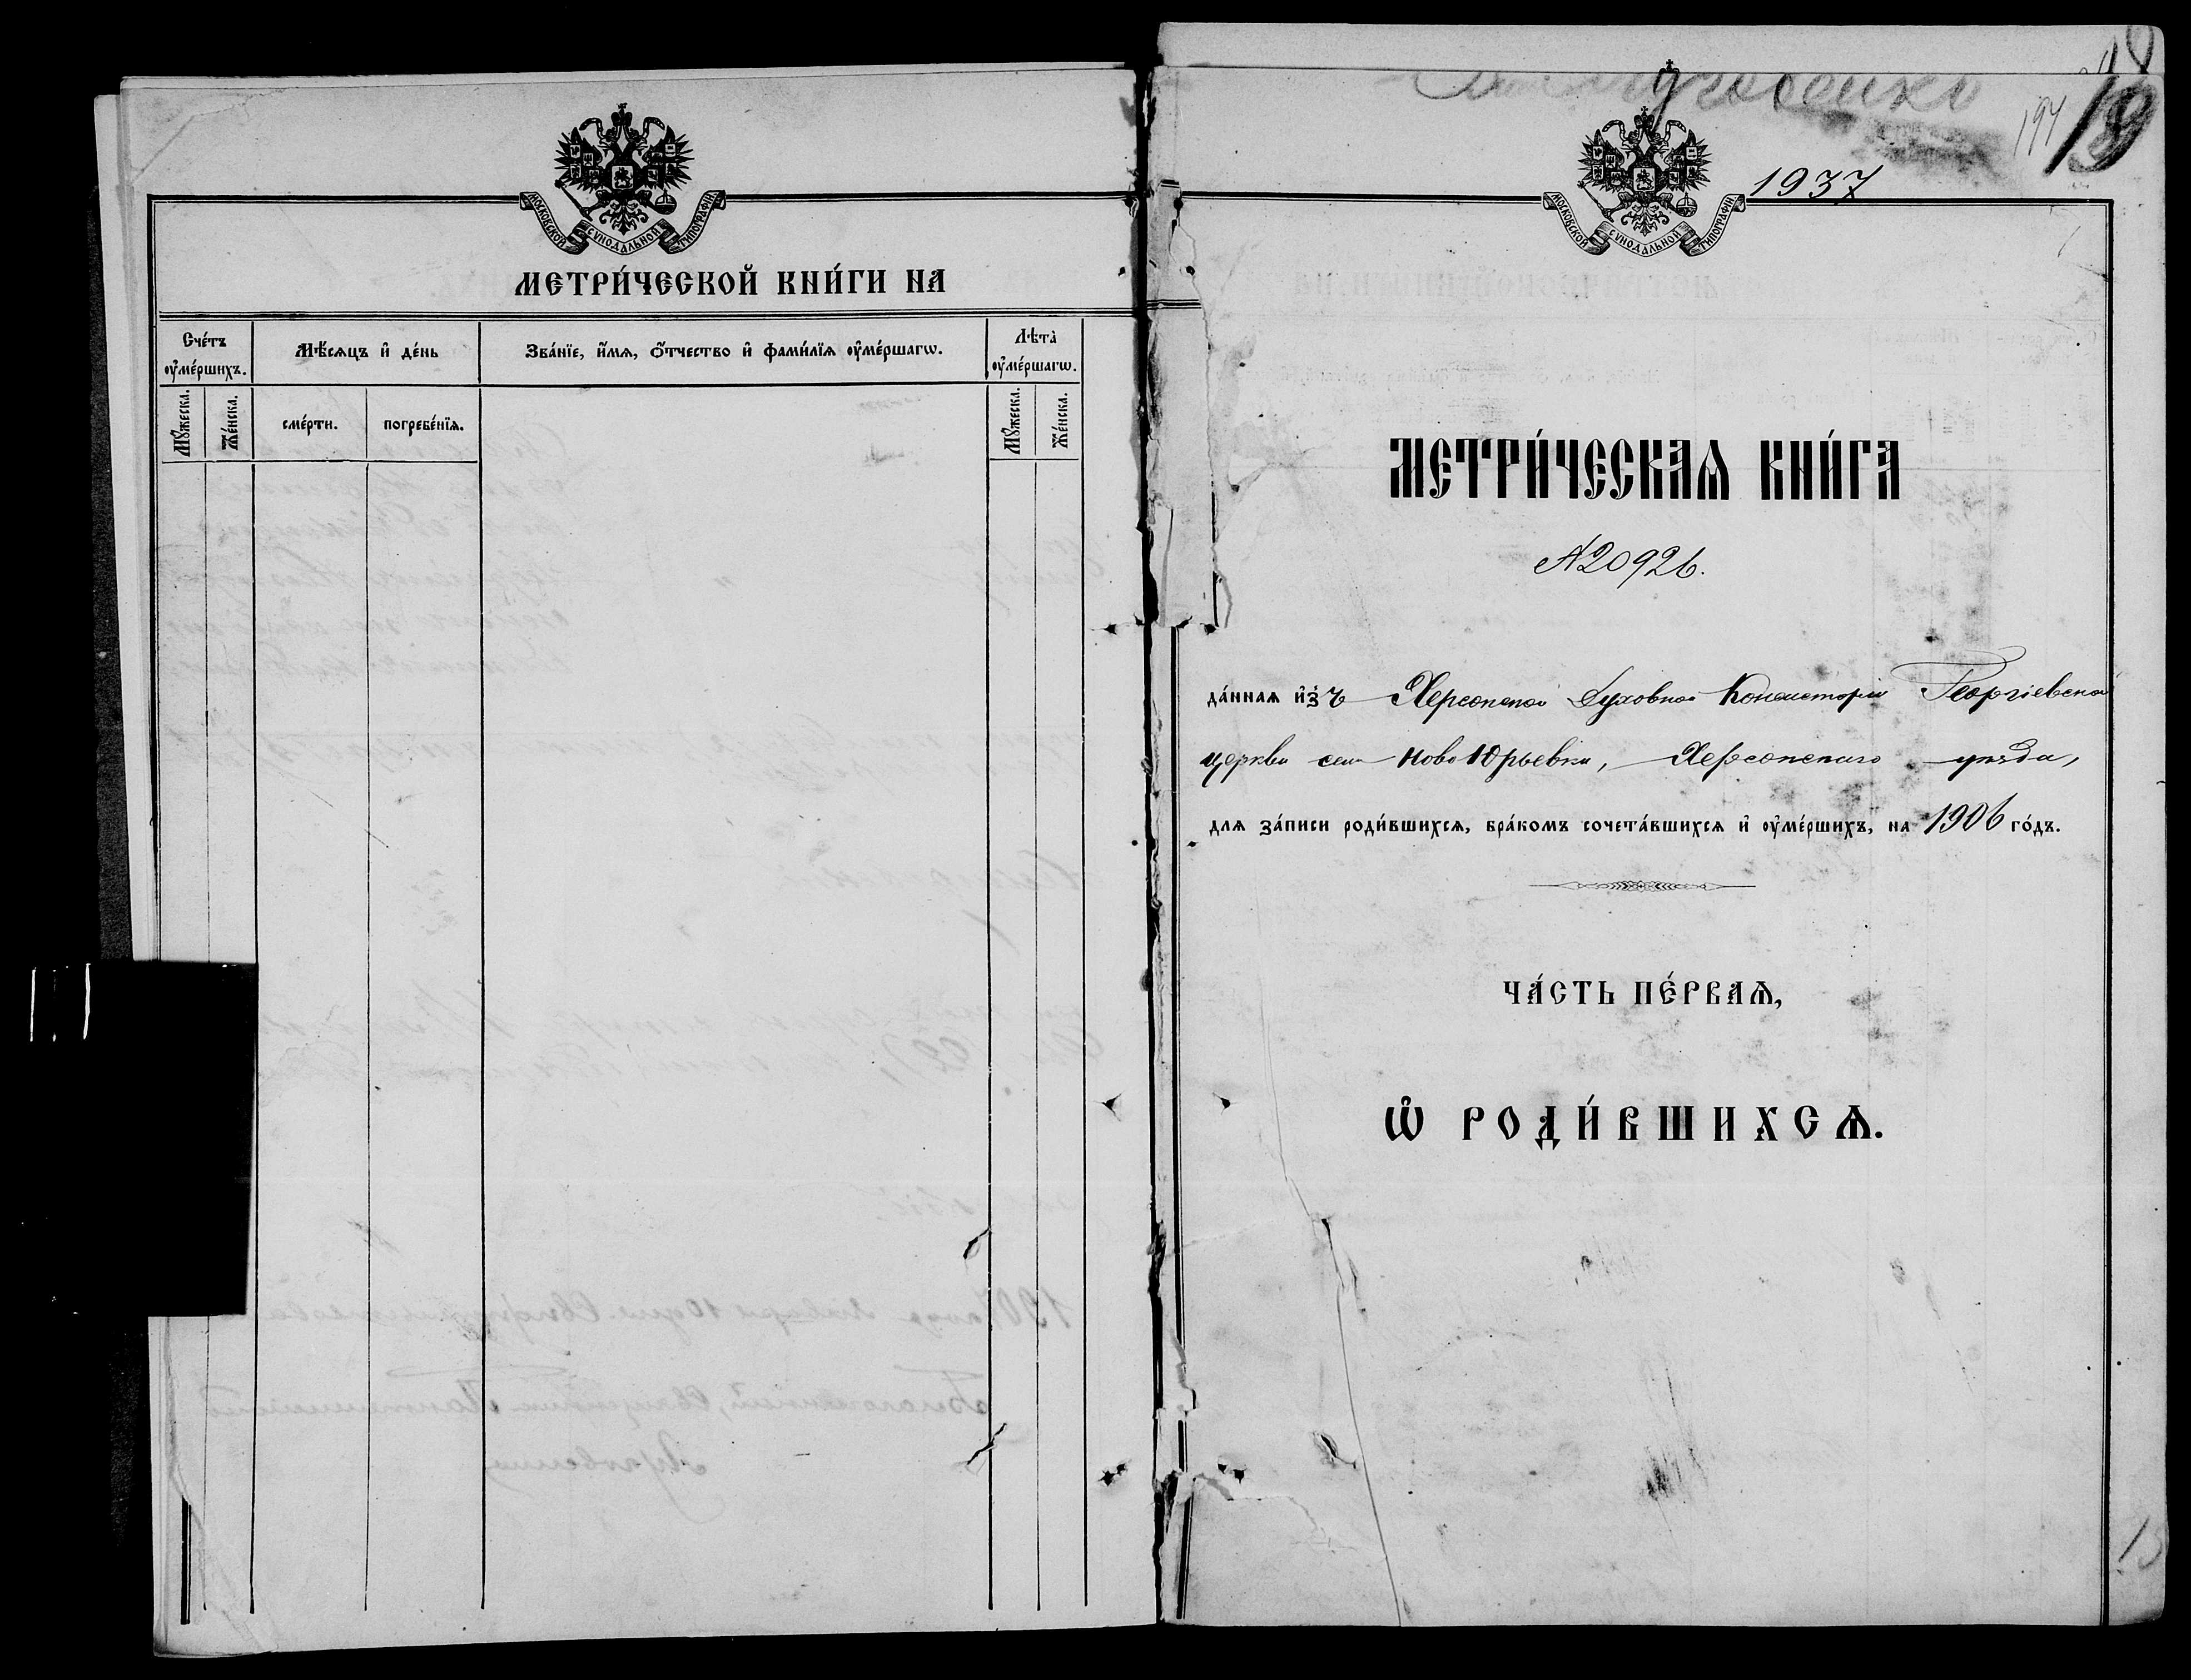 МОСКОВСКОЙ СѴНОДАЛЬНОЙ ТИПОГРАФІИ
МЕТРИ́ЧЕСКОЙ КНИ́ГИ НА
Сче́тъ ᲂу҆ме́ршихъ.
Мѣ́сѧцъ и҆ де́нь
Зва́нїе, и҆́мѧ, ѻ҆́тчество и҆ фами́лїѧ ᲂу҆ме́ршагѡ.
Лѣта̀ ᲂу҆ме́ршагѡ.
Мꙋ́жеска.
Же́нска.
сме́рти.
погребе́нїѧ.
Мꙋ́жеска.
Же́нска.
194
19
1937
МОСКОВСКОЙ СѴНОДАЛЬНОЙ ТИПОГРАФІИ
МЕТРИ́ЧЕСКАѦ КНИ́ГА
№20926.
да́ннаѧ и҆зъ Херсонской Духовной Консисторіи Георгіевской
церкви села Ново Юрьевки, Херсонскаго уѣзда,
длѧ за́писи роди́вшихсѧ, бра́комъ сочета́вшихсѧ и҆ ᲂу҆ме́ршихъ, на 1906 го́дъ.
ЧА́СТЬ ПЕ́РВАѦ,
Ѡ҆ РОДИ́ВШИХСѦ.